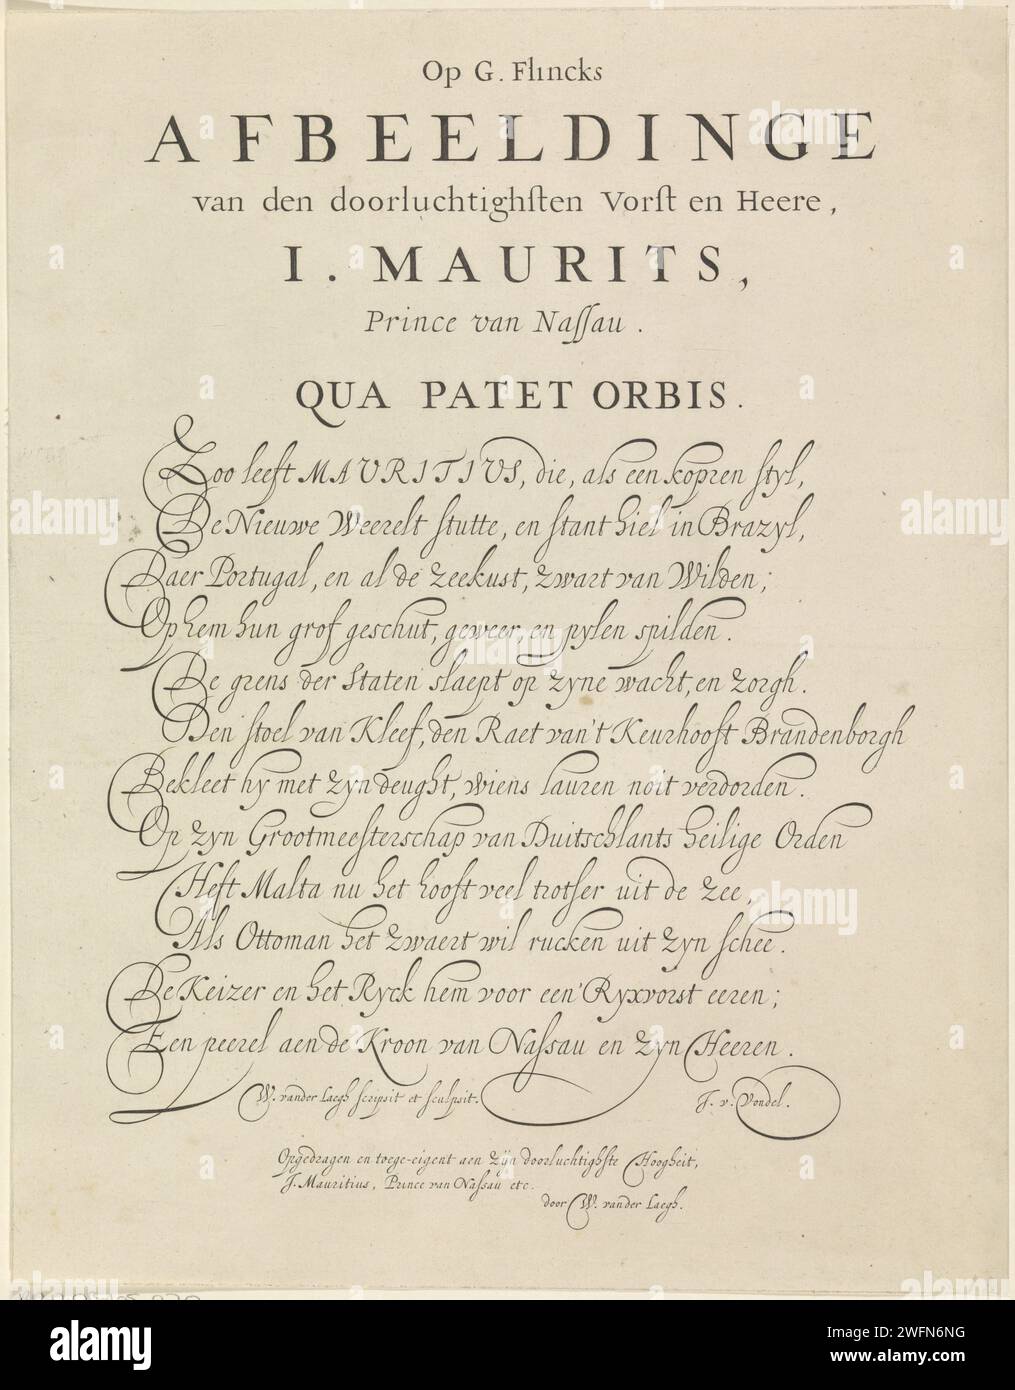 Op G. Flincks
AFBEELDINGE
van den doorluchtighſten Vorſt en Heere,
I. MAURITS,
Prince van Naſſau.
QUA PATET ORBIS.
Zoo leeft MAURITIUS, die, als een kopren styl,
De Nieuwe Weerelt stutte, en stant hiel in Brazyl,
Daer Portugal, en al de zeekust, zwart van Wilden;
Op hem hun grof geschut, geweer, en pylen spilden.
De grens der Staten slaept op zyne wacht, en zorgh.
Den stoel van Kleef, den Raet van't Keurhooft Brandenborgh
Bekleet hy met zyn deught, wiens lauren noit verdorden.
Op zyn Grootmeesterschap van Duitschlants heilige Orden
Heft Malta nu het hooft veel trotser uit de zee,
Als Ottoman het zwaert wil rucken uit zyn schee.
De Keizer en het Ryck hem voor een' Ryxvorst eeren;
Een peerel aen de Kroon van Nassau en zyn Heeren.
W. vander Laegh scripsit et sculpsit.
J. v. Vondel.
Opgedragen en toege-eigent aen zijn doorluchtighste Hoogheit,
J. Mauritius, Prince van Nassau etc.
door W. vander Laegh.
alamy
Image ID: 2WFN6NG
www.alamy.com